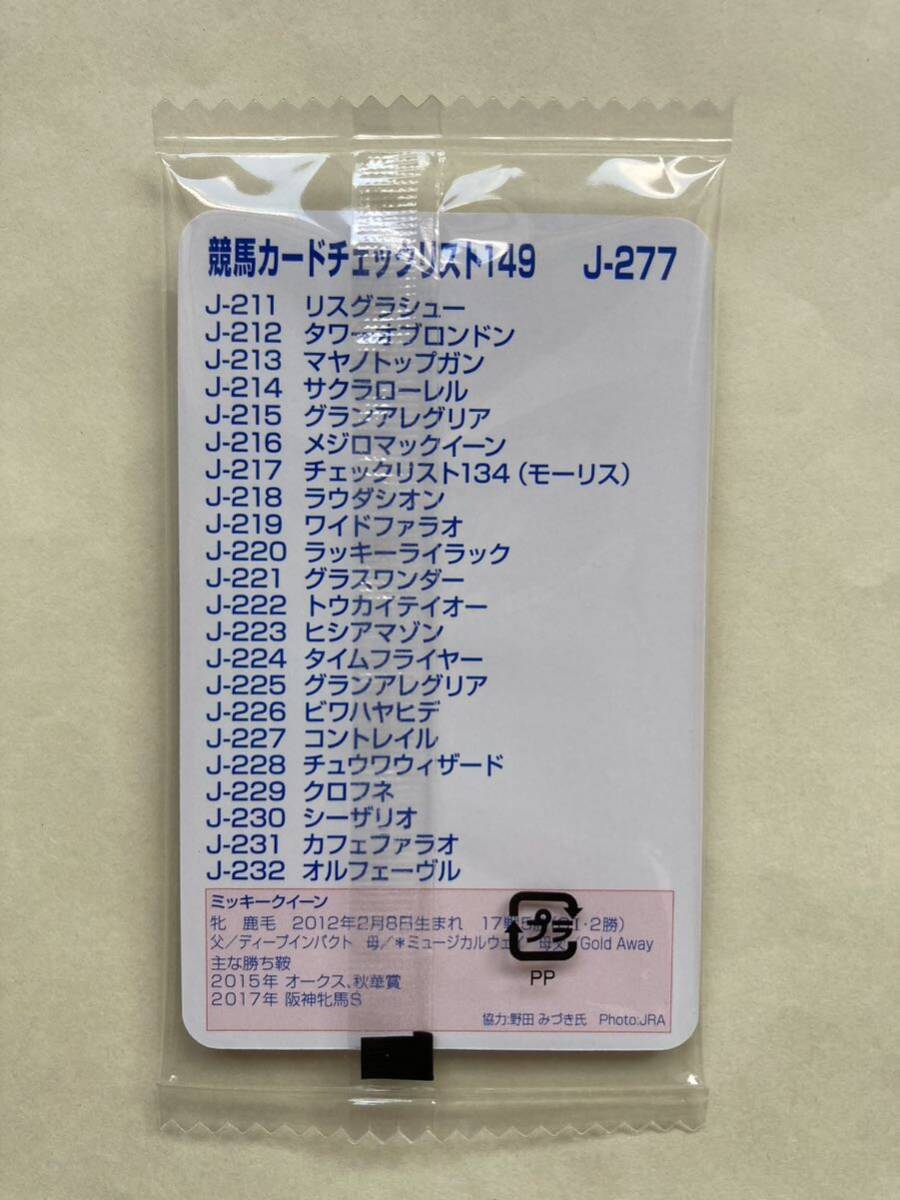 競馬カードチェックリスト149 J-277
J-211 リスグラシュー
J-212 タワーオブロンドン
J-213 マヤノトップガン
J-214 サクラローレル
J-215 グランアレグリア
J-216 メジロマックイーン
J-217 チェックリスト134(モーリス)
J-218 ラウダシオン
J-219 ワイドファラオ
J-220 ラッキーライラック
J-221 グラスワンダー
J-222 トウカイテイオー
J-223 ヒシアマゾン
J-224 タイムフライヤー
J-225 グランアレグリア
J-226 ビワハヤヒデ
J-227 コントレイル
J-228 チュウワウィザード
J-229 クロフネ
J-230 シーザリオ
J-231 カフェファラオ
J-232 オルフェーヴル
ミッキークイーン
牝 鹿毛 2012年2月8日生まれ 17戦5勝(GI・2勝)
父/ディープインパクト 母/*ミュージカルウェイ 母父/Gold Away
主な勝ち鞍
2015年 オークス、秋華賞
2017年 阪神牝馬S
協力:野田 みづき氏 Photo:JRA
プラ
PP